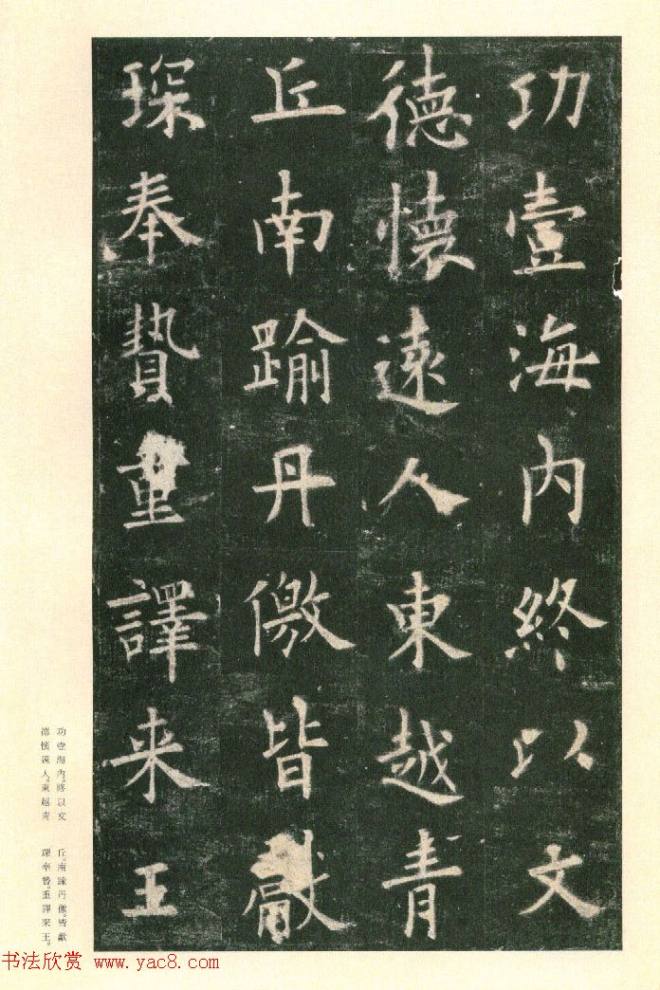 功壹海内終以文
德懷遠人東越青
丘南踰丹徼皆獻
琛奉贄重譯来王
功壹海內。終以文
德懷遠人。東越青
丘。南踰丹徼。皆獻
琛奉贄。重譯來王。
书法欣赏 www.yac8.com